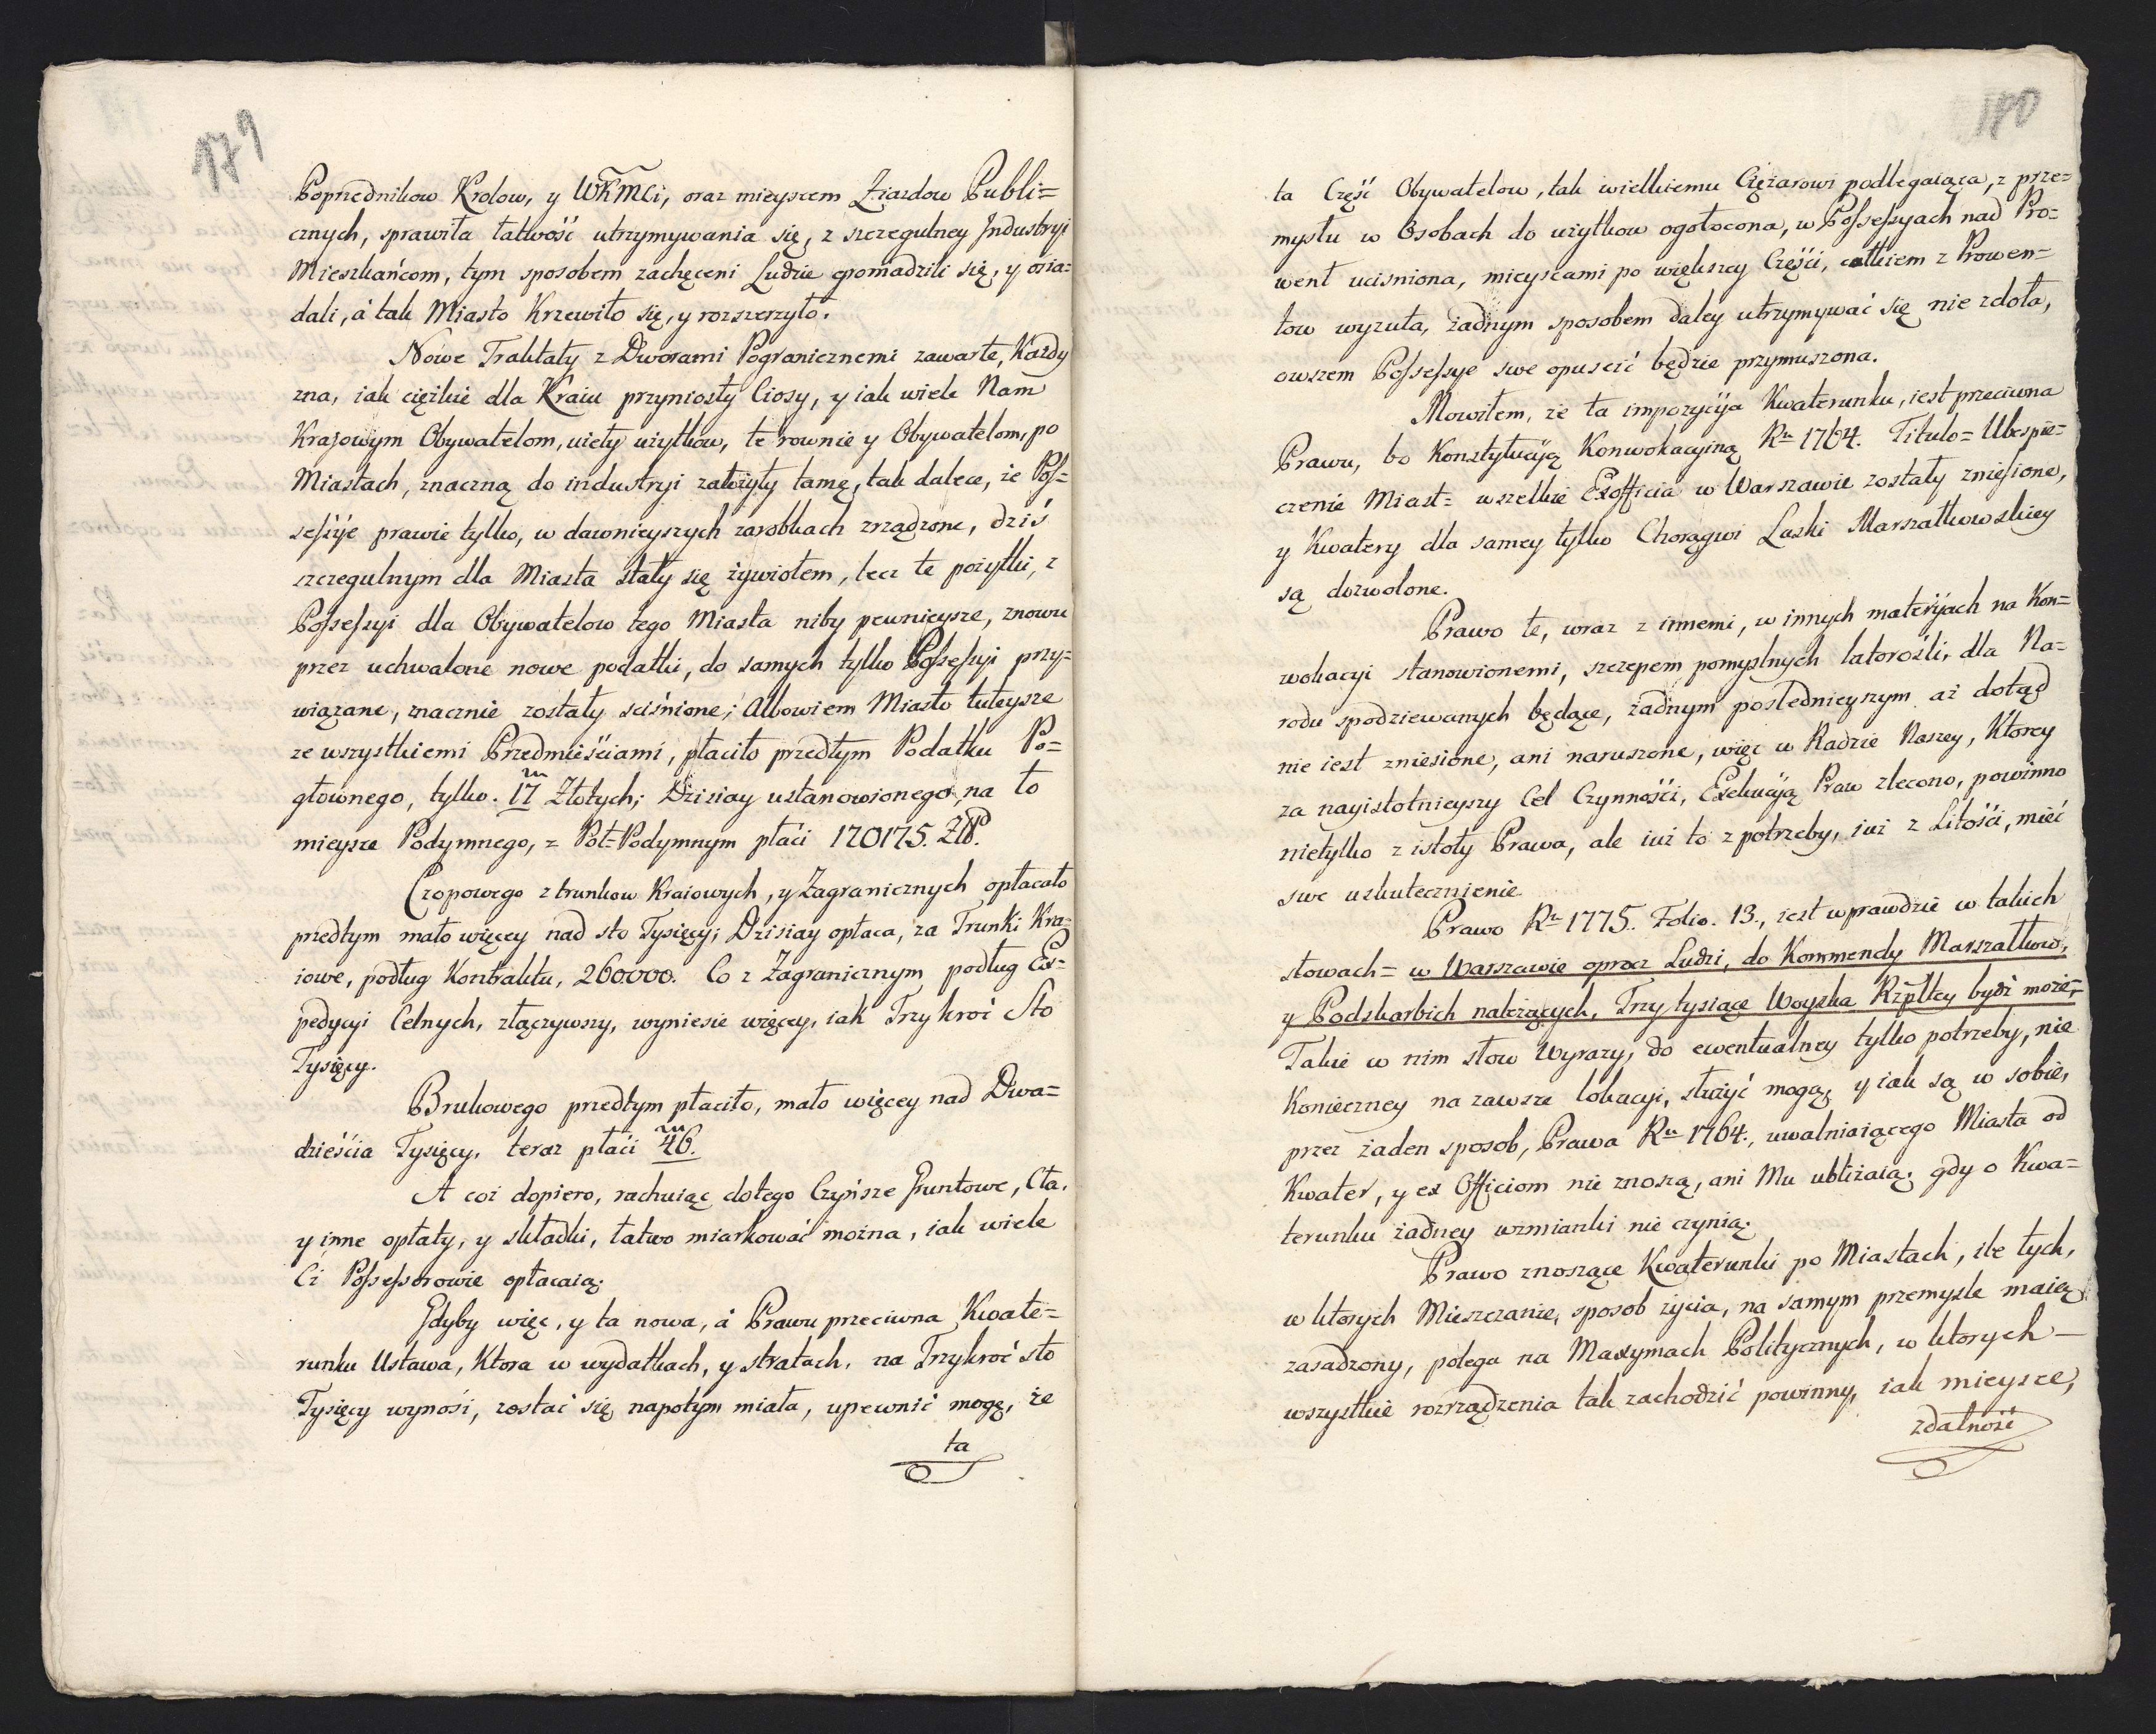 179
Poprzednikow Krolow, y WKMCi, oraz mieyscem Ziazdow Publi=
cznych, sprawiła łatwość utrzymywania się, z szczegulney Jndustryi
Mieszkańcom, tym sposobem zachęceni Ludzie gromadzili się, y osia=
dali, á tak Miasto Krzewiło się, y rozszerzyło.
Nowe Traktaty z Dworami Pogranicznemi zawarte, Każdy
zna, iak cięzkie dla Kraiu przyniosły Ciosy, y iak wiele Nam
Krajowym Obywatelom, uięły użytkow, te rownie y Obywatelom, po
Miastach, znaczną do industryi założyły tamę, tak dalece, że Pos=
sessyje prawie tylko, w dawnieyszych zarobkach zrządzone, dziś
szczegulnym dla Miasta stały się żywiołem, lecz te pożytki, z
Possessyi dla Obywatelow tego Miasta niby pewnieysze, znowu
przez uchwalone nowe podatki, do samych tylko Possessyi przy=
wiązane, znacznie zostały sciśnione; Albowiem Miasto tuteysze
ze wszystkiemi Przedmieściami, płaciło przedtym Podatku Po=
głownego, tylko. 17 m Złotych; Dzisiay ustanowionego, na to
mieysce Podymnego, z Poł=Podymnym płaci 170175. ZłP.
Czopowego z trunkow Kraiowych, y Zagranicznych opłacało
przedtym mało więcey nad sto Tysięcy; Dzisiay opłaca, za Trunki Kra=
iowe, podług Kontraktu, 260000. Co z Zagranicznym podług Ex=
pedycyi Celnych, złączywszy, wyniesie więcey, iak Trzykroć Sto
Tysięcy.
Brukowego przedtym płaciło, mało więcey nad Dwa=
dzieścia Tysięcy, teraz płaci 46 m.
A coż dopiero, rachuiąc dotego Czyńsze Gruntowe, Cła,
y inne opłaty, y składki, łatwo miarkować można, iak wiele
Ci Possessorowie opłacaią.
Gdyby więc, y ta nowa, á Prawu przeciwna Kwate=
runku Ustawa, Ktora w wydatkach, y stratach, na Trzykroć sto
Tysięcy wynosi, zostać się napotym miała, upewnić mogę, że
ta
180
ta Część Obywatelow, tak wielkiemu Ciężarowi podlegaiąca, z prze=
mysłu w Osobach do użytkow ogołocona, w Possessyach nad Pro=
went uciśniona, mieyscami po większey Części, całkiem z Prowen=
tow wyzuta, żadnym sposobem daley utrzymywać się nie zdoła,
owszem Possessye swe opuscić będzie przymuszona.
Mowiłem, że ta impozycyja Kwaterunku, iest przeciwna
Prawu, bo Konstytucyą Konwokacyiną Ru 1764. Titulo= Ubespie=
czenie Miast= wszelkie Exofficia w Warszawie zostały zniesione,
y Kwatery dla samey tylko Chorągwi Laski Marszałkowskiey
są dozwolone.
Prawo te, wraz z innemi, w innych materyjach na Kon=
wokacyi stanowionemi, szczepem pomyslnych latorośli, dla Na=
rodu spodziewanych będące, żadnym poslednieyszym aż dotąd
nie iest zniesione, ani naruszone, więc w Radzie Naszey, Ktorey
za nayistotnieyszy Cel Czynności, Exekucyą Praw zlecono, powinno
nietylko z istoty Prawa, ale iuż to z potrzeby, iuż z Litości, mieć
swe uskutecznienie
Prawo Ru 1775. Folio. 13., iest wprawdzie w takich
słowach= w Warszawie oprocz Ludzi, do Kommendy Marszałkow,
y Podskarbich należących, Trzy tysiące Woyska Rzpltey bydź może,=
Takie w nim słow Wyrazy, do ewentualney tylko potrzeby, nie
Konieczney na zawsze lokacyi, służyć mogą, y iak są w sobie,
przez żaden sposob, Prawa Ru 1764., uwalniaiącego Miasta od
Kwater, y ex Officiom nie znoszą, ani Mu ubliżaią, gdy o Kwa=
terunku żadney wzmianki nie czynią.
Prawo znoszące Kwaterunki po Miastach, ile tych,
w ktorych Mieszczanie, sposob życia, na samym przemysle maią
zasadzony, polega na Maxymach Politycznych, w ktorych —
wszystkie rozrządzenia tak zachodzić powinny, iak mieysce,
zdatność